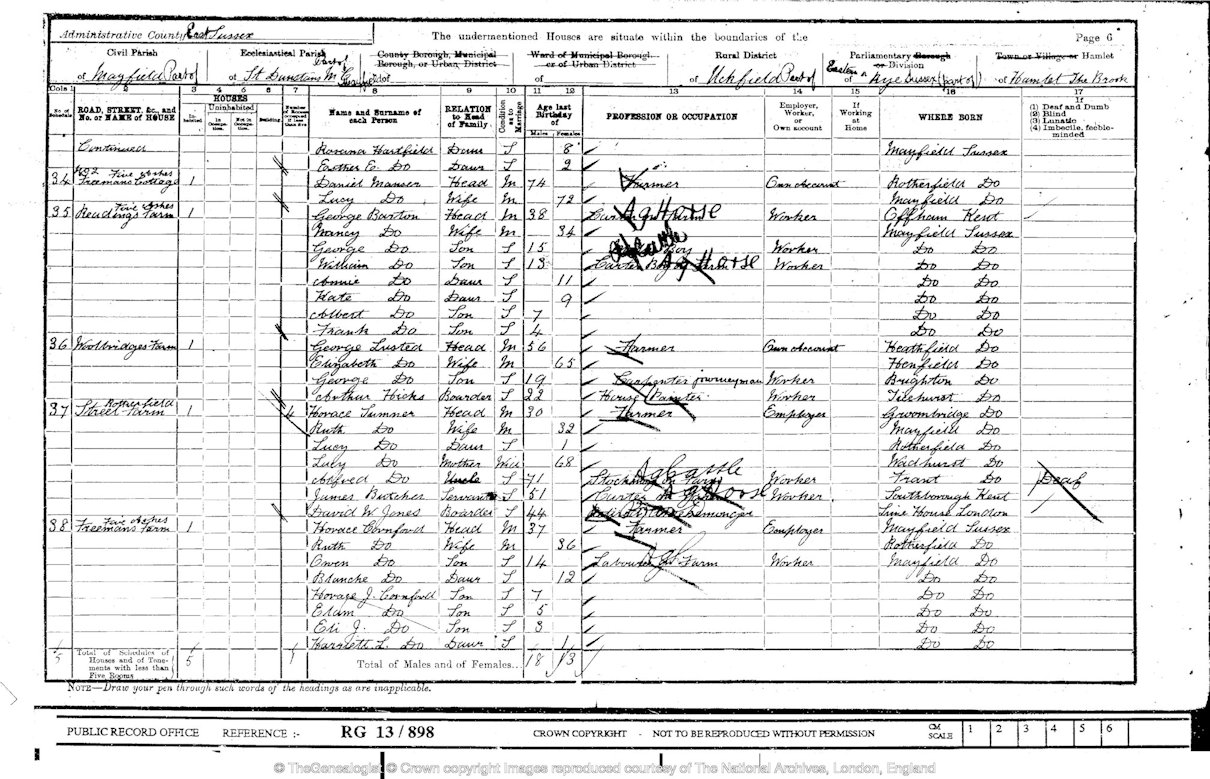 Administrative County East Sussex
The undermentioned Houses are situate within the boundaries of the
Page 6
Civil Parish
of Mayfield Part of
Ecclesiastical Parish
Part of
of St Dunstans
County Borough, Municipal Borough, or Urban District
of
Ward of Municipal Borough or of Urban District
of
Rural District
of Uckfield Part of
Parliamentary Borough or Division
of Eastern or Rye Sussex (part of)
Town or Village or Hamlet
of Hamlet The Brook
Cols 1 2 3 4 5 6 7 8 9 10 11 12 13 14 15 16 17
No. of Schedule
ROAD, STREET, &c., and No. or NAME of HOUSE
HOUSES
Inhabited
Uninhabited
In Occupation
Not in Occupation
Building
Number of Rooms occupied if less than five
Name and Surname of each Person
RELATION to Head of Family
Condition as to Marriage
Age last Birthday of
Males Females
PROFESSION OR OCCUPATION
Employer, Worker, or Own account
If Working at Home
WHERE BORN
If (1) Deaf and Dumb (2) Blind (3) Lunatic (4) Imbecile, feeble-minded
Continued Rosanna Hartfield Daur S 8 Mayfield Sussex
Esther E. Do Daur S 2
34 No 2 Five Ashes Freemans Cottage 1 Daniel Manser Head M 74 Farmer Own Account Rotherfield Do
Lucy Do Wife M 72 Mayfield Do
35 Five Ashes Readings Farm 1 George Barton Head M 38 Carter on Farm Ag Horse Worker Offham Kent
Nancy Do Wife M 34 Mayfield Sussex
George Do Son S 15 Boy Worker Do Do
William Do Son S 13 Carter Boy on Farm Ag Horse Worker Do Do
Annie Do Daur S 11 Do Do
Kate Do Daur S 9 Do Do
Albert Do Son S 7 Do Do
Frank Do Son S 4 Do Do
36 Woolbridges Farm 1 George Lusted Head M 56 Farmer Own Account Heathfield Do
Elizabeth Do Wife M 65 Henfield Do
George Do Son S 19 Carpenter journeyman Worker Brighton Do
Arthur Hicks Boarder S 22 House Painter Worker Ticehurst Do
37 Rotherfield Street Farm 1 4 Horace Tumner Head M 30 Farmer Employer Groombridge Do
Ruth Do Wife M 32 Mayfield Do
Lucy Do Daur S 1 Rotherfield Do
Lucy Do Mother Wid 68 Wadhurst Do
Alfred Do Uncle S 71 Stockman on Farm Ag Cattle Worker Frant Do Deaf
James Butcher Servant S 51 Carter on Farm Ag Horse Worker Southborough Kent
David W Jones Boarder S 44 Lime House London
38 Five Ashes Freemans Farm Horace Cornford Head M 37 Farmer Employer Mayfield Sussex
Ruth Do Wife M 36 Rotherfield Do
Owen Do Son S 14 Labourer On Farm Worker Mayfield Do
Blanche Do Daur S 12 Do Do
Horace J. Cornford Son S 7 Do Do
Do Son S 5 Do Do
Eli J. Do Son S 3 Do Do
Harriett L. Do Daur S 1 Do Do
5 Total of Schedules of Houses and of Tenements with less than Five Rooms 5 1 Total of Males and of Females... 18 13
NOTE—Draw your pen through such words of the headings as are inapplicable.
PUBLIC RECORD OFFICE REFERENCE :- RG 13 / 898 CROWN COPYRIGHT - NOT TO BE REPRODUCED WITHOUT PERMISSION CM SCALE 1 2 3 4 5 6
© TheGenealogist © Crown copyright Images reproduced courtesy of The National Archives, London, England